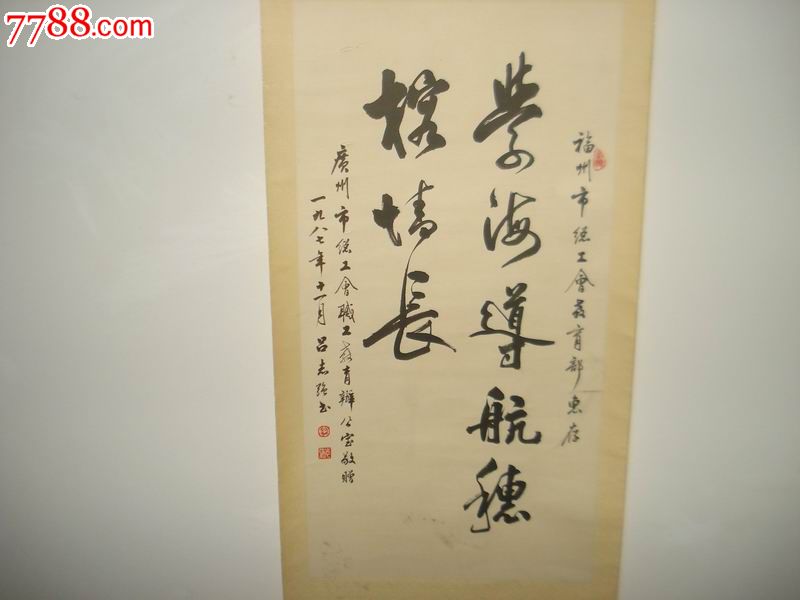 7788.com
福州市總工會教育部惠存
學海導航穗
榕情長
廣州市總工會職工教育辦公室敬贈
一九八七年十一月 呂志強书